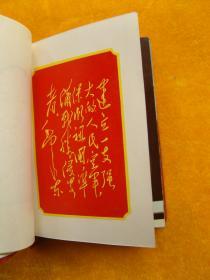 建立一支强
大的人民空军，
保卫祖国，准
备战胜侵略
者。
毛泽东